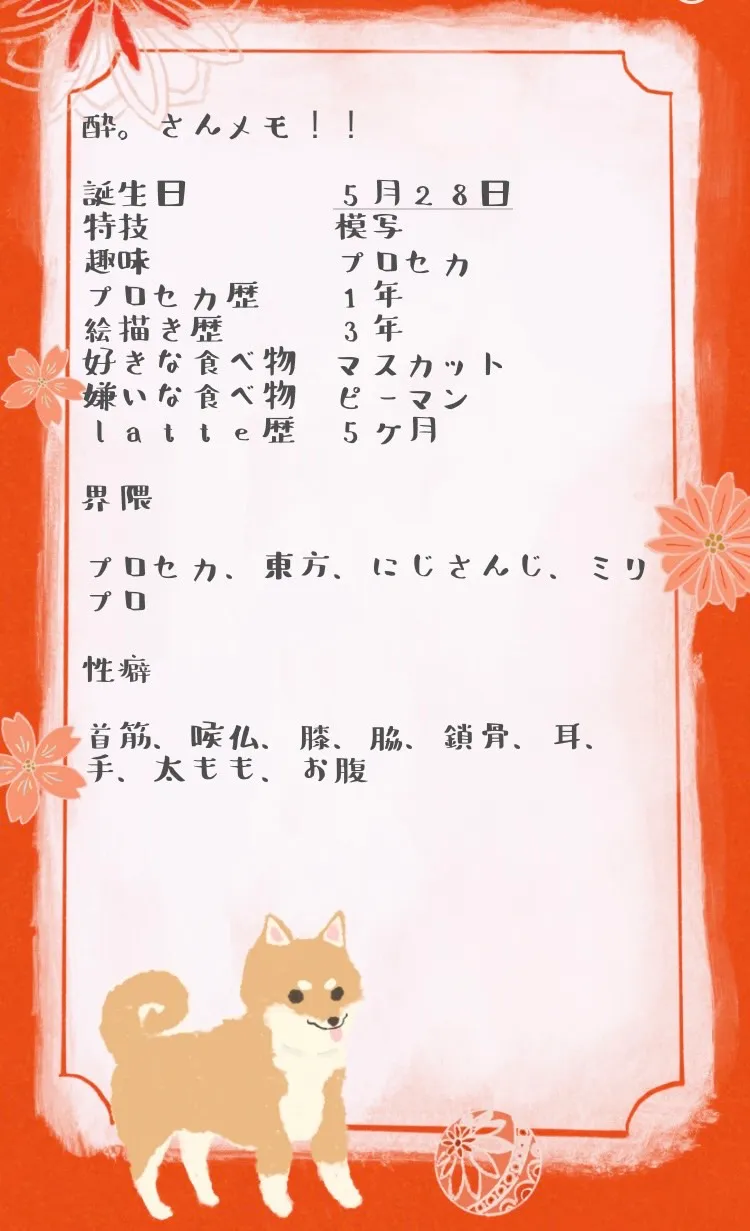 酔。さんメモ！！
誕生日　５月２８日
特技　模写
趣味　プロセカ
プロセカ歴　１年
絵描き歴　３年
好きな食べ物　マスカット
嫌いな食べ物　ピーマン
ｌａｔｔｅ歴　５ケ月
界隈
プロセカ、東方、にじさんじ、ミリ
プロ
性癖
首筋、喉仏、膝、脇、鎖骨、耳、
手、太もも、お腹